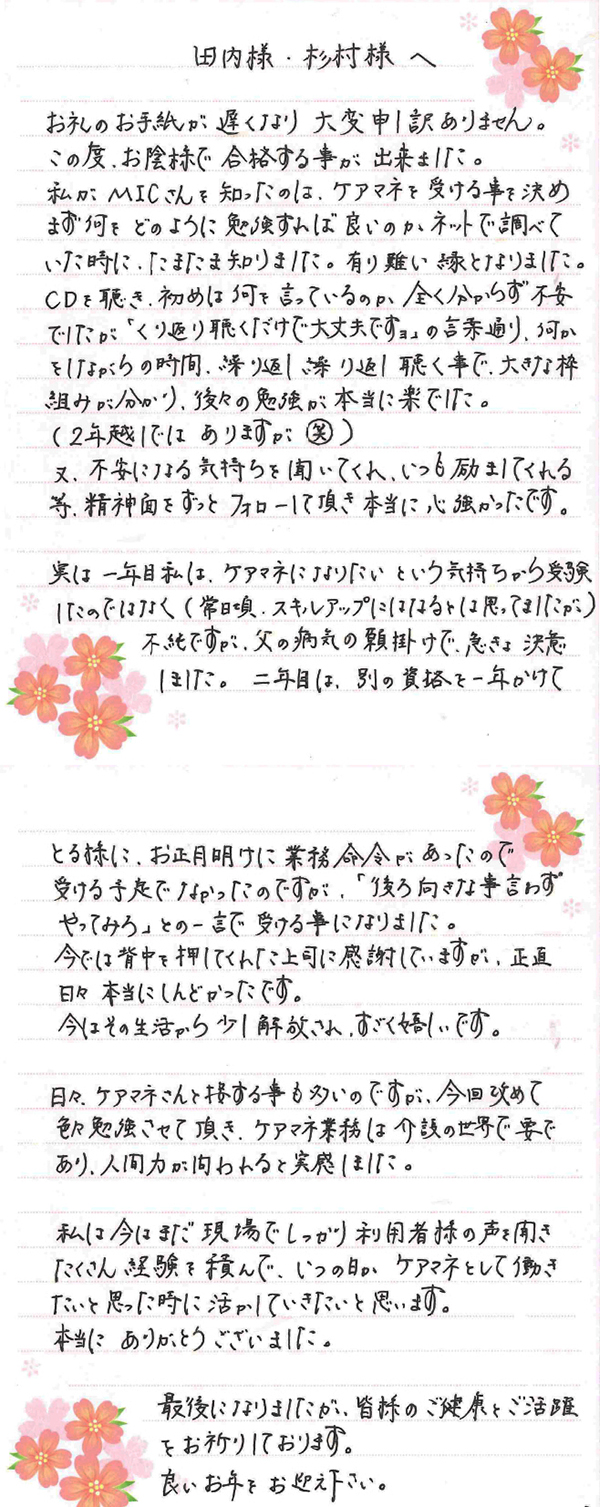 田内様・杉村様へ
お礼のお手紙が遅くなり大変申し訳ありません。
この度、お陰様で合格する事が出来ました。
私がMICさんを知ったのは、ケアマネを受ける事を決め
まず何をどのように勉強すれば良いのか、ネットで調べて
いた時に、たまたま知りました。有り難い縁となりました。
CDを聴き、初めは何を言っているのか、全く分からず不安
でしたが「くり返り聴くだけで大丈夫ですョ」の言葉通り、何か
をしながらの時間、繰り返し繰り返し聴く事で、大きな枠
組みが分かり、後々の勉強が本当に楽でした。
(2年越しではありますが㊑)
又、不安になる気持ちを聞いてくれ、いつも励ましてくれる
等、精神面をずっとフォローして頂き本当に心強かったです。
実は一年目私は、ケアマネになりたいという気持ちから受験
したのではなく(常日頃、スキルアップにはなるとは思ってましたが)
不純ですが、父の病気の願掛けで、急きょ決意
しました。二年目は、別の資格を一年かけて
とる様に、お正月明けに業務命令があったので
受ける予定でなかったのですが、「後ろ向きな事言わず
やってみろ」との一言で受ける事になりました。
今では背中を押してくれた上司に感謝していますが、正直
日々本当にしんどかったです。
今はその生活から少し解放され、すごく嬉しいです。
日々、ケアマネさんと接する事も多いのですが、今回改めて
色々勉強させて頂き、ケアマネ業務は介護の世界で要で
あり、人間力が問われると実感しました。
私は今はまだ現場でしっかり利用者様の声を聞き
たくさん経験を積んで、いつの日かケアマネとして働き
たいと思った時に活かしていきたいと思います。
本当にありがとうございました。
最後になりましたが、皆様のご健康とご活躍
をお祈りしております。
良いお年をお迎え下さい。